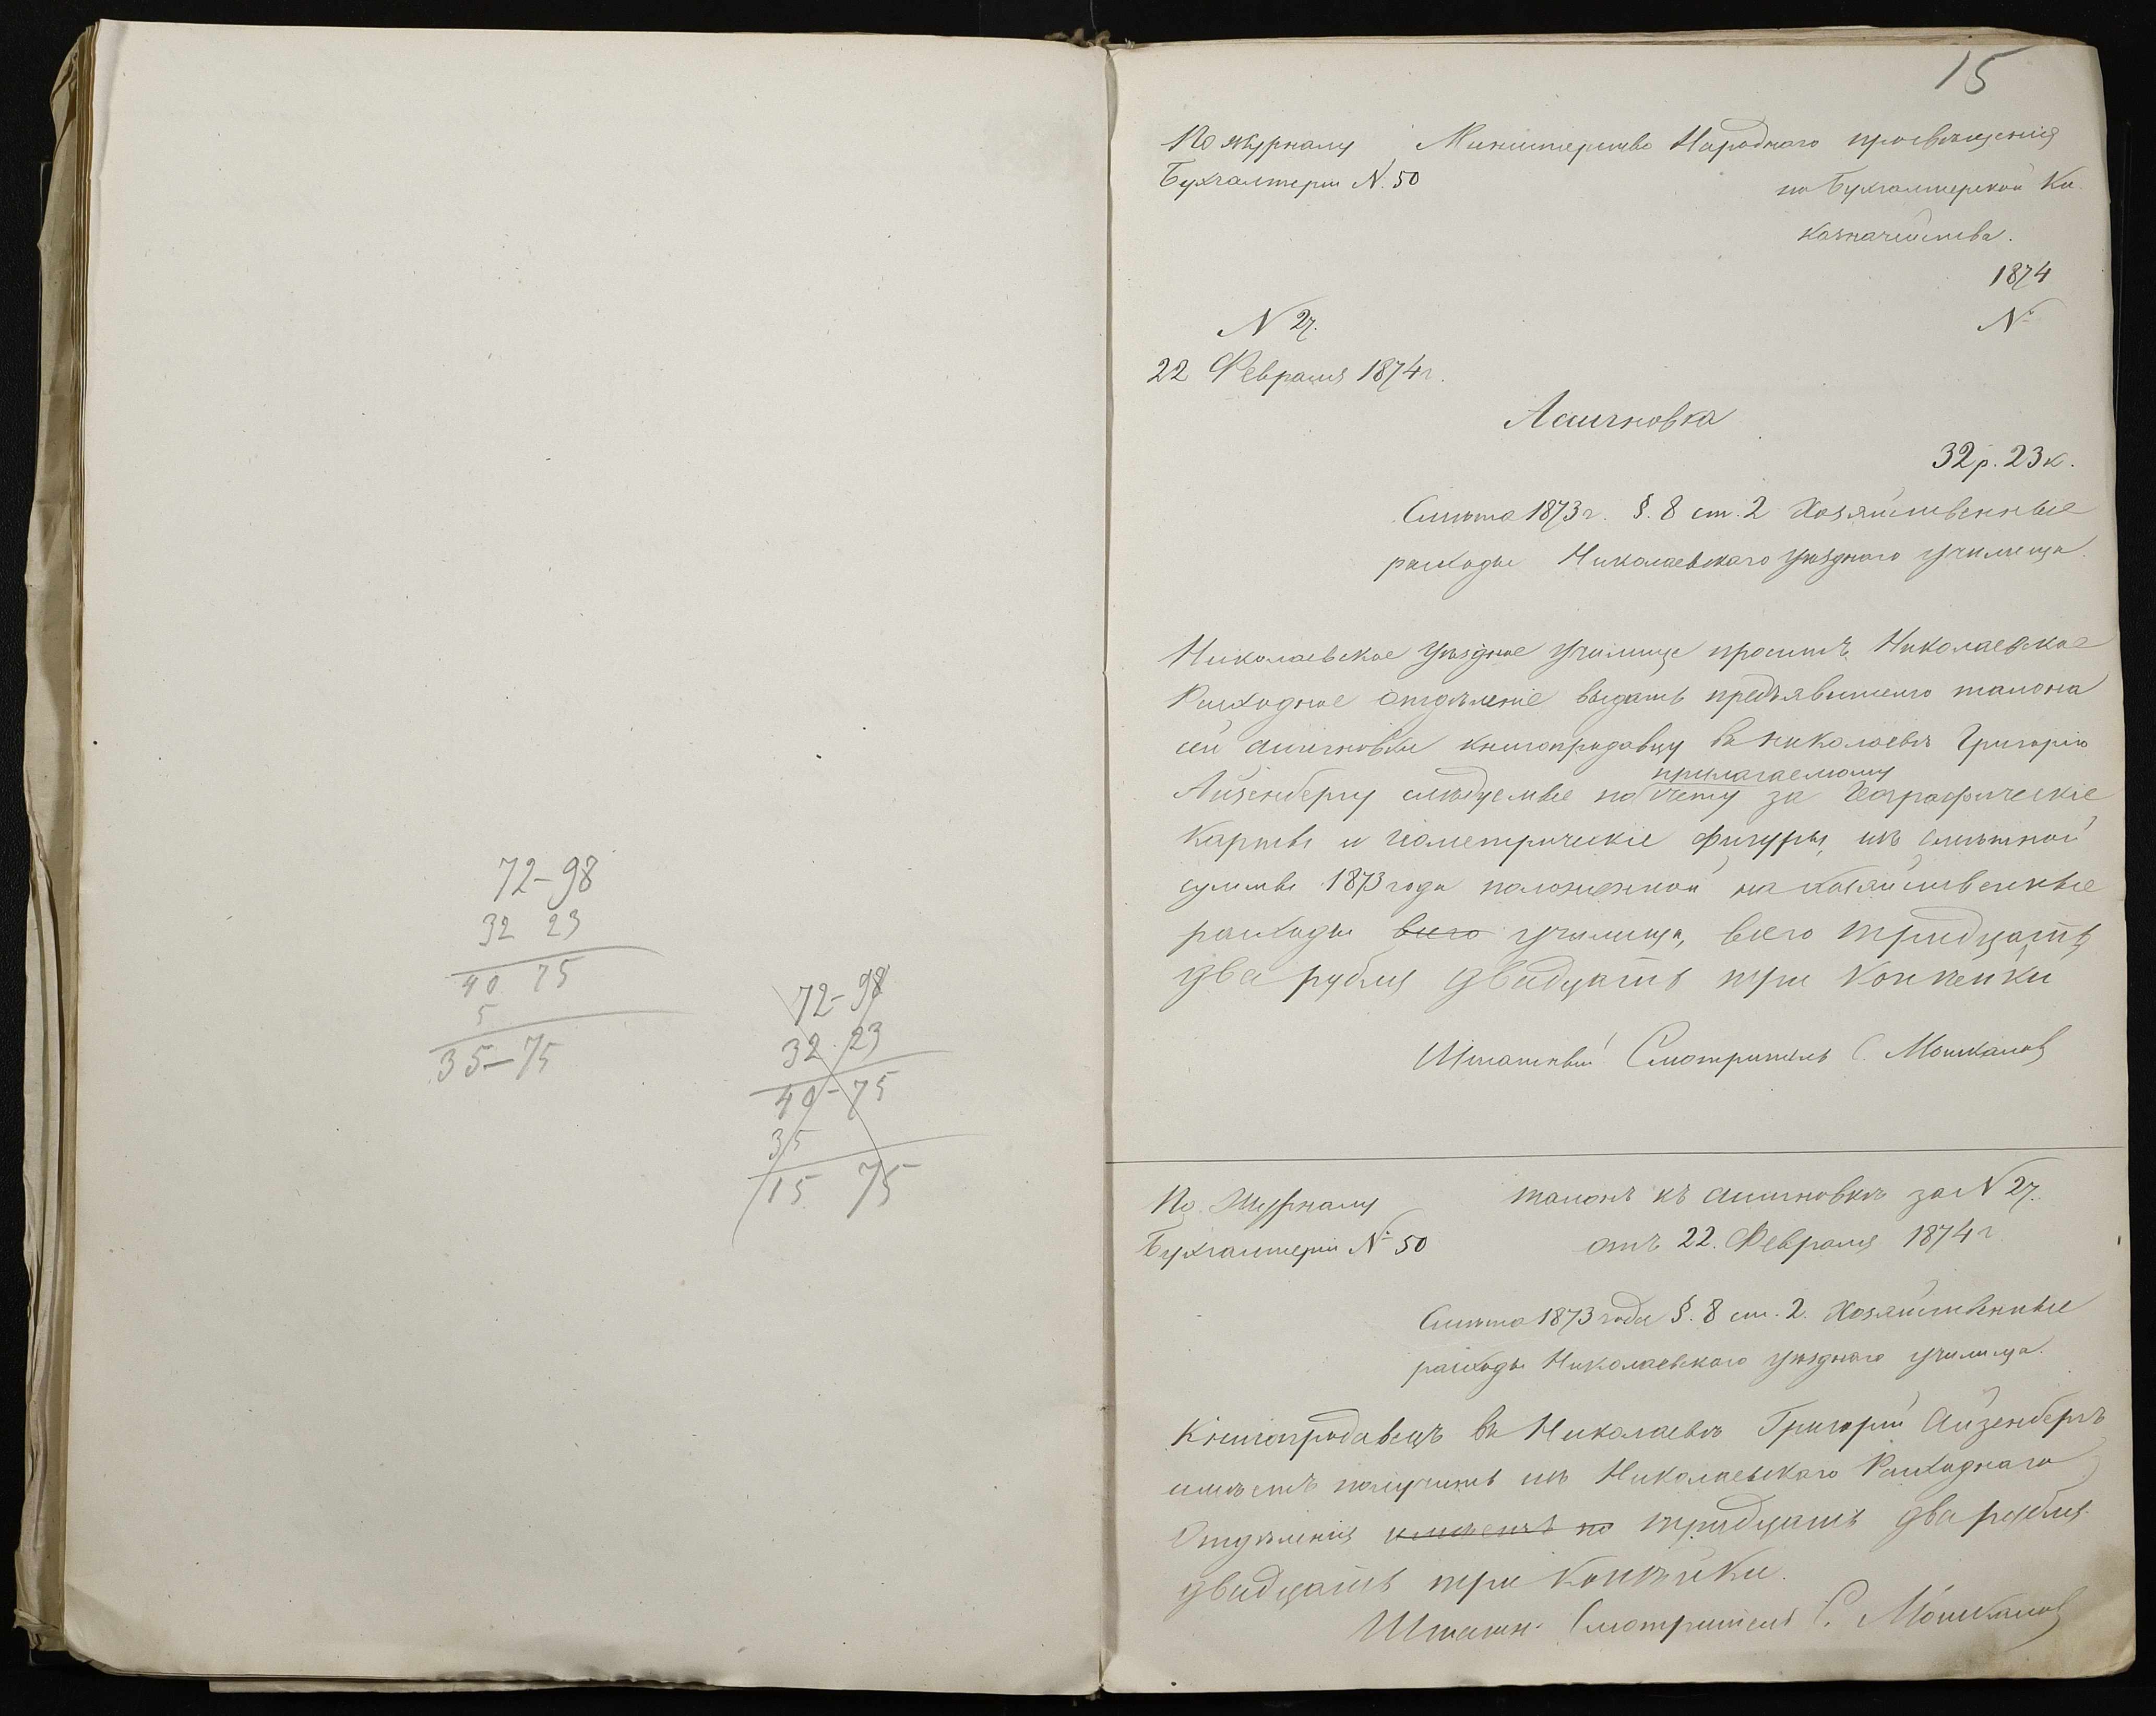 72-98
32 23
40 75
5
35-75
72-98
32. 23
40-75
35
15 75
15
По журналу Министерство Народнаго просвѣщенія
Бухгалтеріи N. 50
по Бухгалтерской Кн.
Казначейства.
1874
N 27.
N
22 Февраля 1874 г.
Асигновка
32 р. 23 к.
Смѣта 1873 г. §. 8 ст. 2 Хозяйственные
расходы Николаевского уѣзднаго училища.
Николаевское Уѣздное Училище проситъ Николаевское
Расходное Отдѣленіе выдать предъявителю талона
сей асигновки книгопродавцу въ Николаевѣ Григорію
прилагаемому
Айзенбергу слѣдуемые по счету за Географическіе
карты и геометрическіе фигуры, изъ смѣтной
суммы 1873 года положенной на хозяйственные
расходы всего училища, всего тридцать
два рубля двадцать три копѣйки
Штатный Смотритель С. Мошкалов
По Журналу талонъ къ асигновкѣ за N 27.
Бухгалтеріи № 50 отъ 22. Февраля 1874 г
Смѣта 1873 года §. 8 ст. 2. Хозяйственные
расходы Николаевского уѣзднаго училища.
Книгопродавецъ въ Николаевѣ Григорій Айзенбергъ
имѣетъ получить изъ Николаевскаго Расходнаго
Отдѣленія имѣетъ по тридцать два рубля
двадцать три копѣйки.
Штатн. Смотритель С. Мошкалов